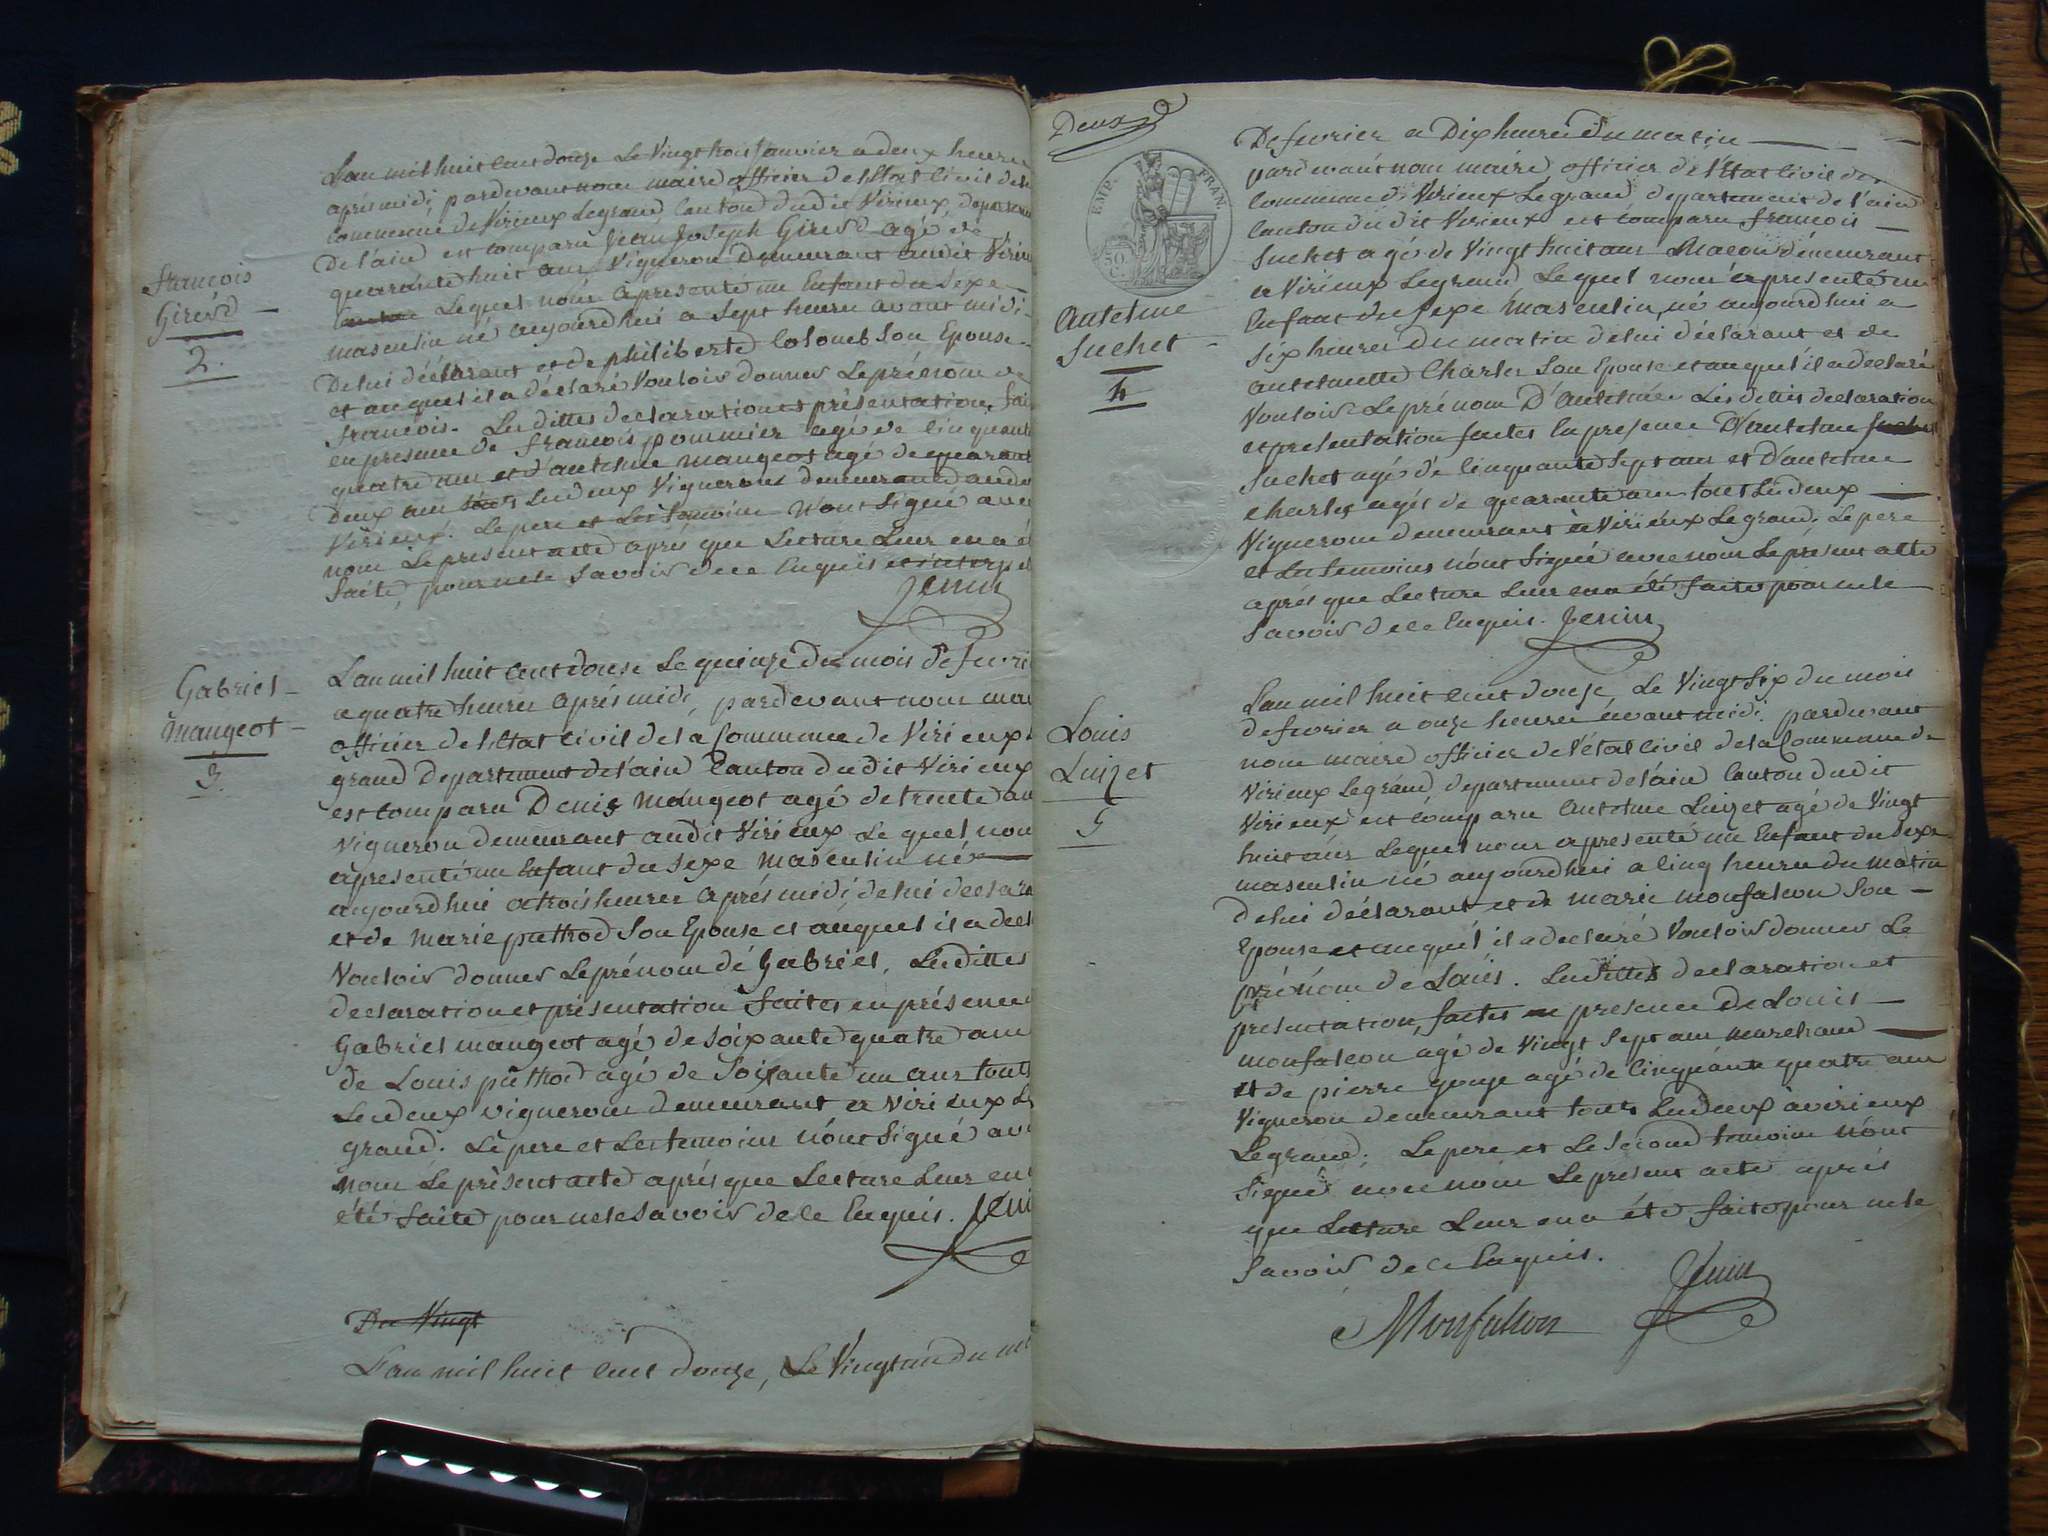 L'an mil huit cent douze Le Vingt trois Janvier a deux heures
apres midi, pardevant nous maire officier de l'Etat Civil de la
Commune de Virieux Legrand Canton dudit Virieux, departement
De l'ain est comparu Jean Joseph Girerd agé de
quarante huit ans Vigneron Demeurant audit Virieu
Lequel nous a presenté un Enfant du Sexe
masculin né aujourd'hui a Sept heures avant midi
De lui déclarant et de philiberte Colomb Son Epouse
et auquel il a déclaré Vouloir donner Le prénom de
françois. Les dittes declaration et présentation, fai
en presence de françois pommier agé de Cinquante
quatre ans et d'antelme mangeot agé de quarant
Deux ans Les deux Vignerons demeurant aud
Virieux. Le pere et Les temoins N'ont Signé avec
nous Le present acte apres que Lecture Leur en a é
faite, pour ne le Savoir de ce Enquis
Jenin
François
Girerd
2.
Gabriel
Mangeot
3.
L'an mil huit Cent douse Le quinze du mois de fevri
a quatre heures après midi, pardevant nous mai
officier de l'Etat Civil de la Commune de Virieux
grand Departement de l'ain Canton dudit Virieux
est Comparu Denis Mangeot agé de trente an
Vigneron demeurant audit Virieux Le quel nou
a presenté un Enfant du Sexe Masculin né
aujourd'hui a trois heures après midi, de lui declara
et de Marie pathod Son Epouse et auquel il a decl
Vouloir donner Le prénom de Gabriel, Les dittes
declaration et présentation faites en présence
Gabriel mangeot agé de Soixante quatre ans
de Louis pathod agé de Soixante un ans tout
Les deux vignerons demeurant a Virieux Le
grand. Le pere et Les temoins N'ont Signé av
nous Le présent acte après que Lecture Leur en
été faite pour ne le Savoir de ce Enquis. Jeni
De Vingt
L'an mil huit Cent douze, Le Vingt un du m
Deux
EMP. FRAN.
50 C.
Antelme
Suchet
4
De fevrier a Dix heures du matin
pardevant nous maire officier de l'Etat Civil de
Commune de Virieux Legrand departement de l'ain
Canton du dit Virieux est Comparu françois
Suchet agé de Vingt huit ans Macon démeurant
a Virieux Legrand Lequel nous a presenté un
Enfant du Sexe Masculin, né aujourd'hui a
Six heures Du matin de lui déclarant et de
antelmette Charles Son Epouse et auquel il a declaré
Vouloir Le prénom D'Antelme Les dittes declaration
et presentation faites En presence D'antelme
Suchet agé de Cinquante Sept ans et D'antelme
Charles agés de quarante ans tous Les deux
Vignerons demeurant a Virieux Le grand; Le pere
et Les temoins n'ont Signé avec nous Le présent acte
apres que Lecture Leur en a été faites pour ne le
Savoir de ce Enquis. Jenin
Louis
Luizet
5
L'an mil huit Cent douse, Le Vingt Six du mois
de fevrier a onze heures avant midi pardevant
nous maire officier de l'état Civil de la Commune de
Virieux Legrand, departement de l'ain Canton dudit
Virieux est Comparu Antelme Luizet agé de Vingt
huit ans Lequel nous a presenté un Enfant du Sexe
masculin né aujourd'hui a Cinq heures du Matin
de lui déclarant et de marie monfalcon Son
Epouse et auquel, il a declaré Vouloir donner Le
prénom de Louis. Les dittes declaration et
presentation, faites en presence De Louis
monfalcon agé de Vingt Sept ans marchand
et de pierre gouge agé de Cinquante quatre ans
Vigneron demeurant tous Les deux a virieux
Legrand; Le pere et Le Second temoins n'ont
Signé avec nous Le present acte après
que Lecture Leur en a été faite pour ne le
Savoir de ce Enquis.
Jenin
Monfalcon